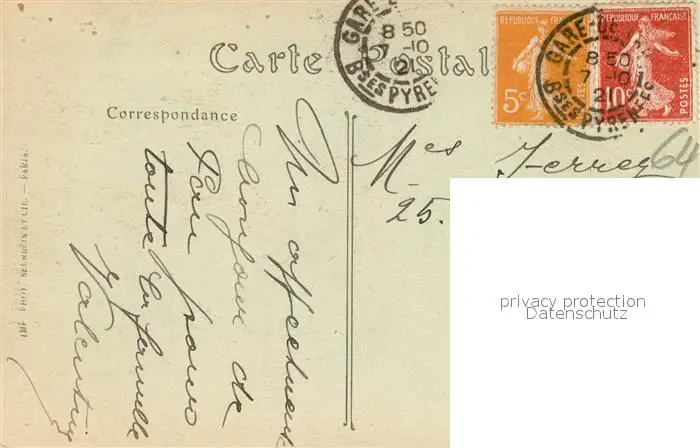 Carte Postale
Correspondance
REPUBLIQUE FRANÇAISE
5c
REPUBLIQUE FRANÇAISE
10c
POSTES
GARE DE
8 50
7 -10
21
Bses PYRENEES
GARE DE
8 50
7 -10
21
Bses PYRENEES
64
Mes Ferrey
25.
Un affectueux
bonjour de
Pau pour
toute la famille
Valentine
IMP. PHOT. NEURDEIN ET CIE. — PARIS.
privacy protection
Datenschutz